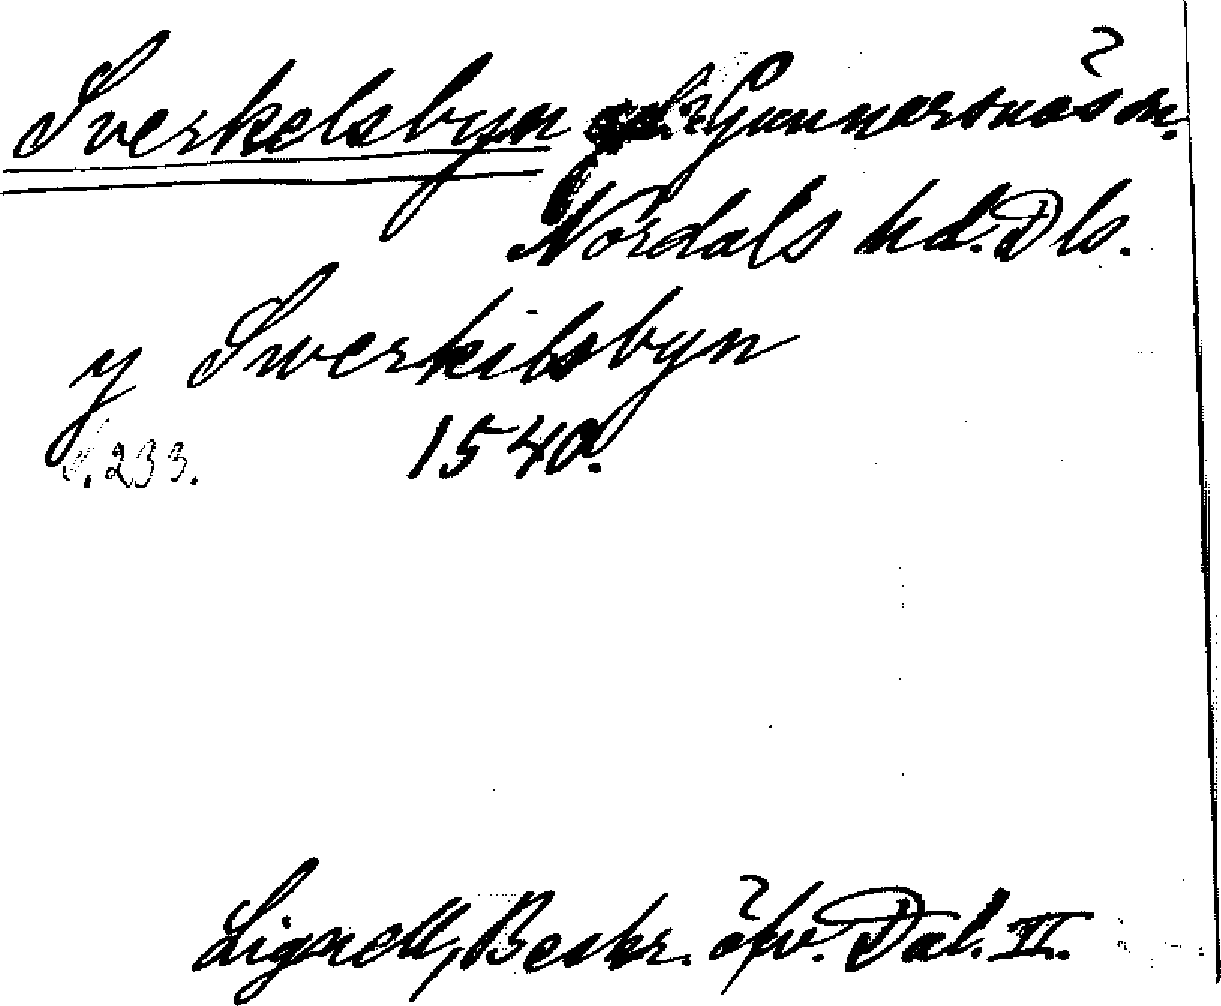 Sverkelsbyn Gunnarsnäs sn.
Nordals hd. Dls.
y Swerkilsbyn
S. 233. 1540.
Lignell, Beskr. öfv. Dal. II.